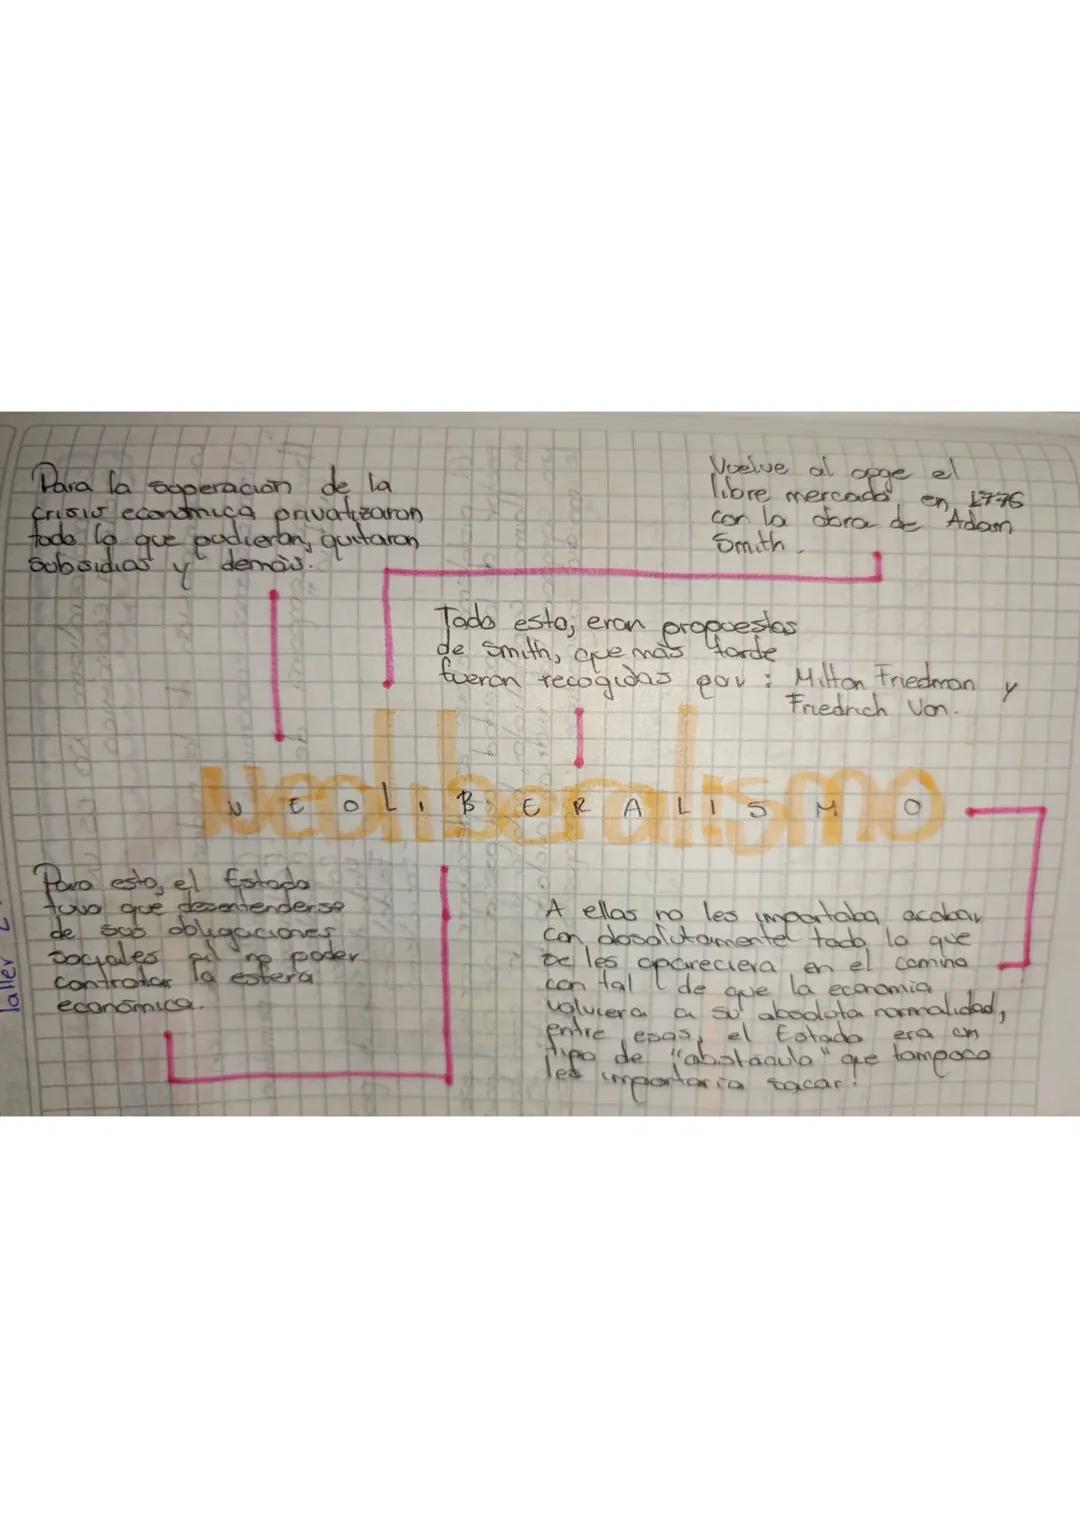 Para la soperación de la
crisis económica privatizaron
todo lo que pudieran, quitaron
subsidias y demás.
Vuelve al apge el
libre mercado, en 1776
con la obra de Adam
Smith.
Todo esto, eran propuestas
de Smith, que más tarde
fueron recogidas por: Milton Friedman y
Friedrich Von.
Neoliberalismo
NEOLIBERALISMO
Para esto, el Estado
tuvo que desentenderse
de sus obligaciones
sociales al no poder
controlar la esfera
económica.
A ellos no les importaba acabar
con absolutamente todo lo que
se les apareciera en el camino
con tal de que la economía
volviera a su absoluta normalidad,
entre esos, el Estado era un
tipo de "obstáculo" que tampoco
les importaría sacar.
Taller